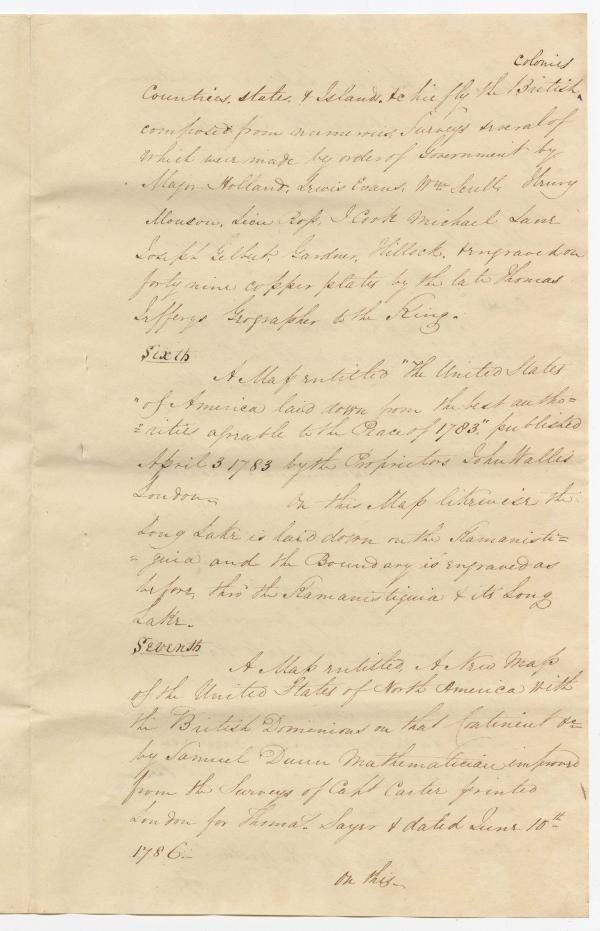 colonies
Countries, states, & Islands, &c hiefly the British ^
composed from numerous, Surveys several of
which were made by order of Government by
Major Holland, Lewis Evans, Wm Scull, Henry
Mouson, Lieu Ross, J. Cook Michael Lane
Joseph Gilbert, Gardner, Hillock, & engraved on
forty nine copper plates by the late Thomas
Jefferys Geographer to the King.
Sixth
A Map entitled "The United States
"of America laid down from the best autho=
=rities agreable to the Peace of 1783", published
April 3 1783 by the Proprietors John Wallis
London. On this Map likewise the
Long Lake is laid down on the Kamanisti=
=quia and the Boundary is engraved as
before, thro' the Kamanistiquia & its Long
Lake.
Seventh
A Map entitled, A New Map
of the United States of North America with
the British Dominions on that Continent &c
by Samuel Dunn Mathematician improved
from the Surveys of Capt Carter printed
London for Thomas Sayer & dated June 10th
1786.
On this